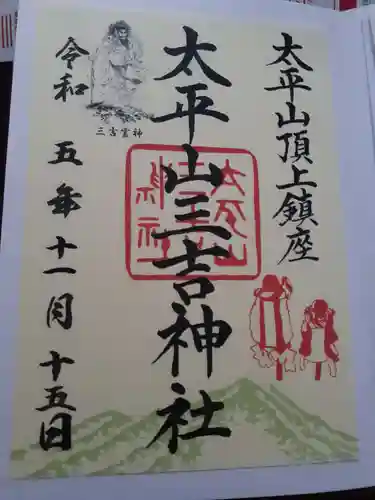 太平山頂上鎮座
太平山三吉神社
三吉霊神
令和 五年 十一月 十五日